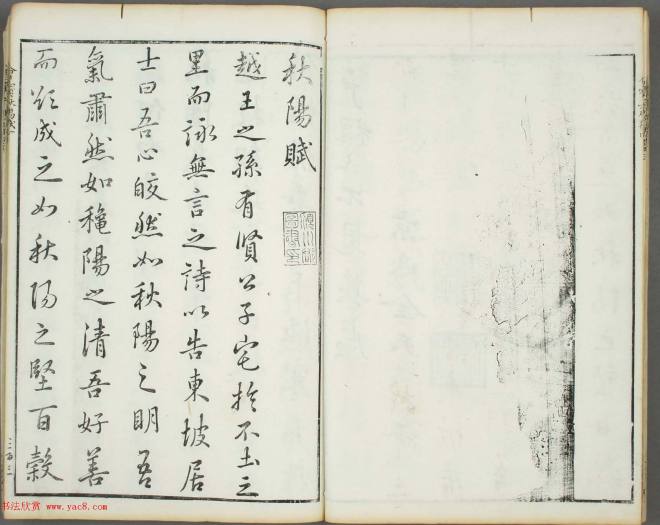 秋陽賦
越王之孫有賢公子宅於不土之
里而詠無言之詩以告東坡居
士曰吾心皎然如秋陽之明吾
氣肅然如秋陽之清吾好善
而欲成之如秋陽之堅百穀
书法欣赏 www.yac8.com